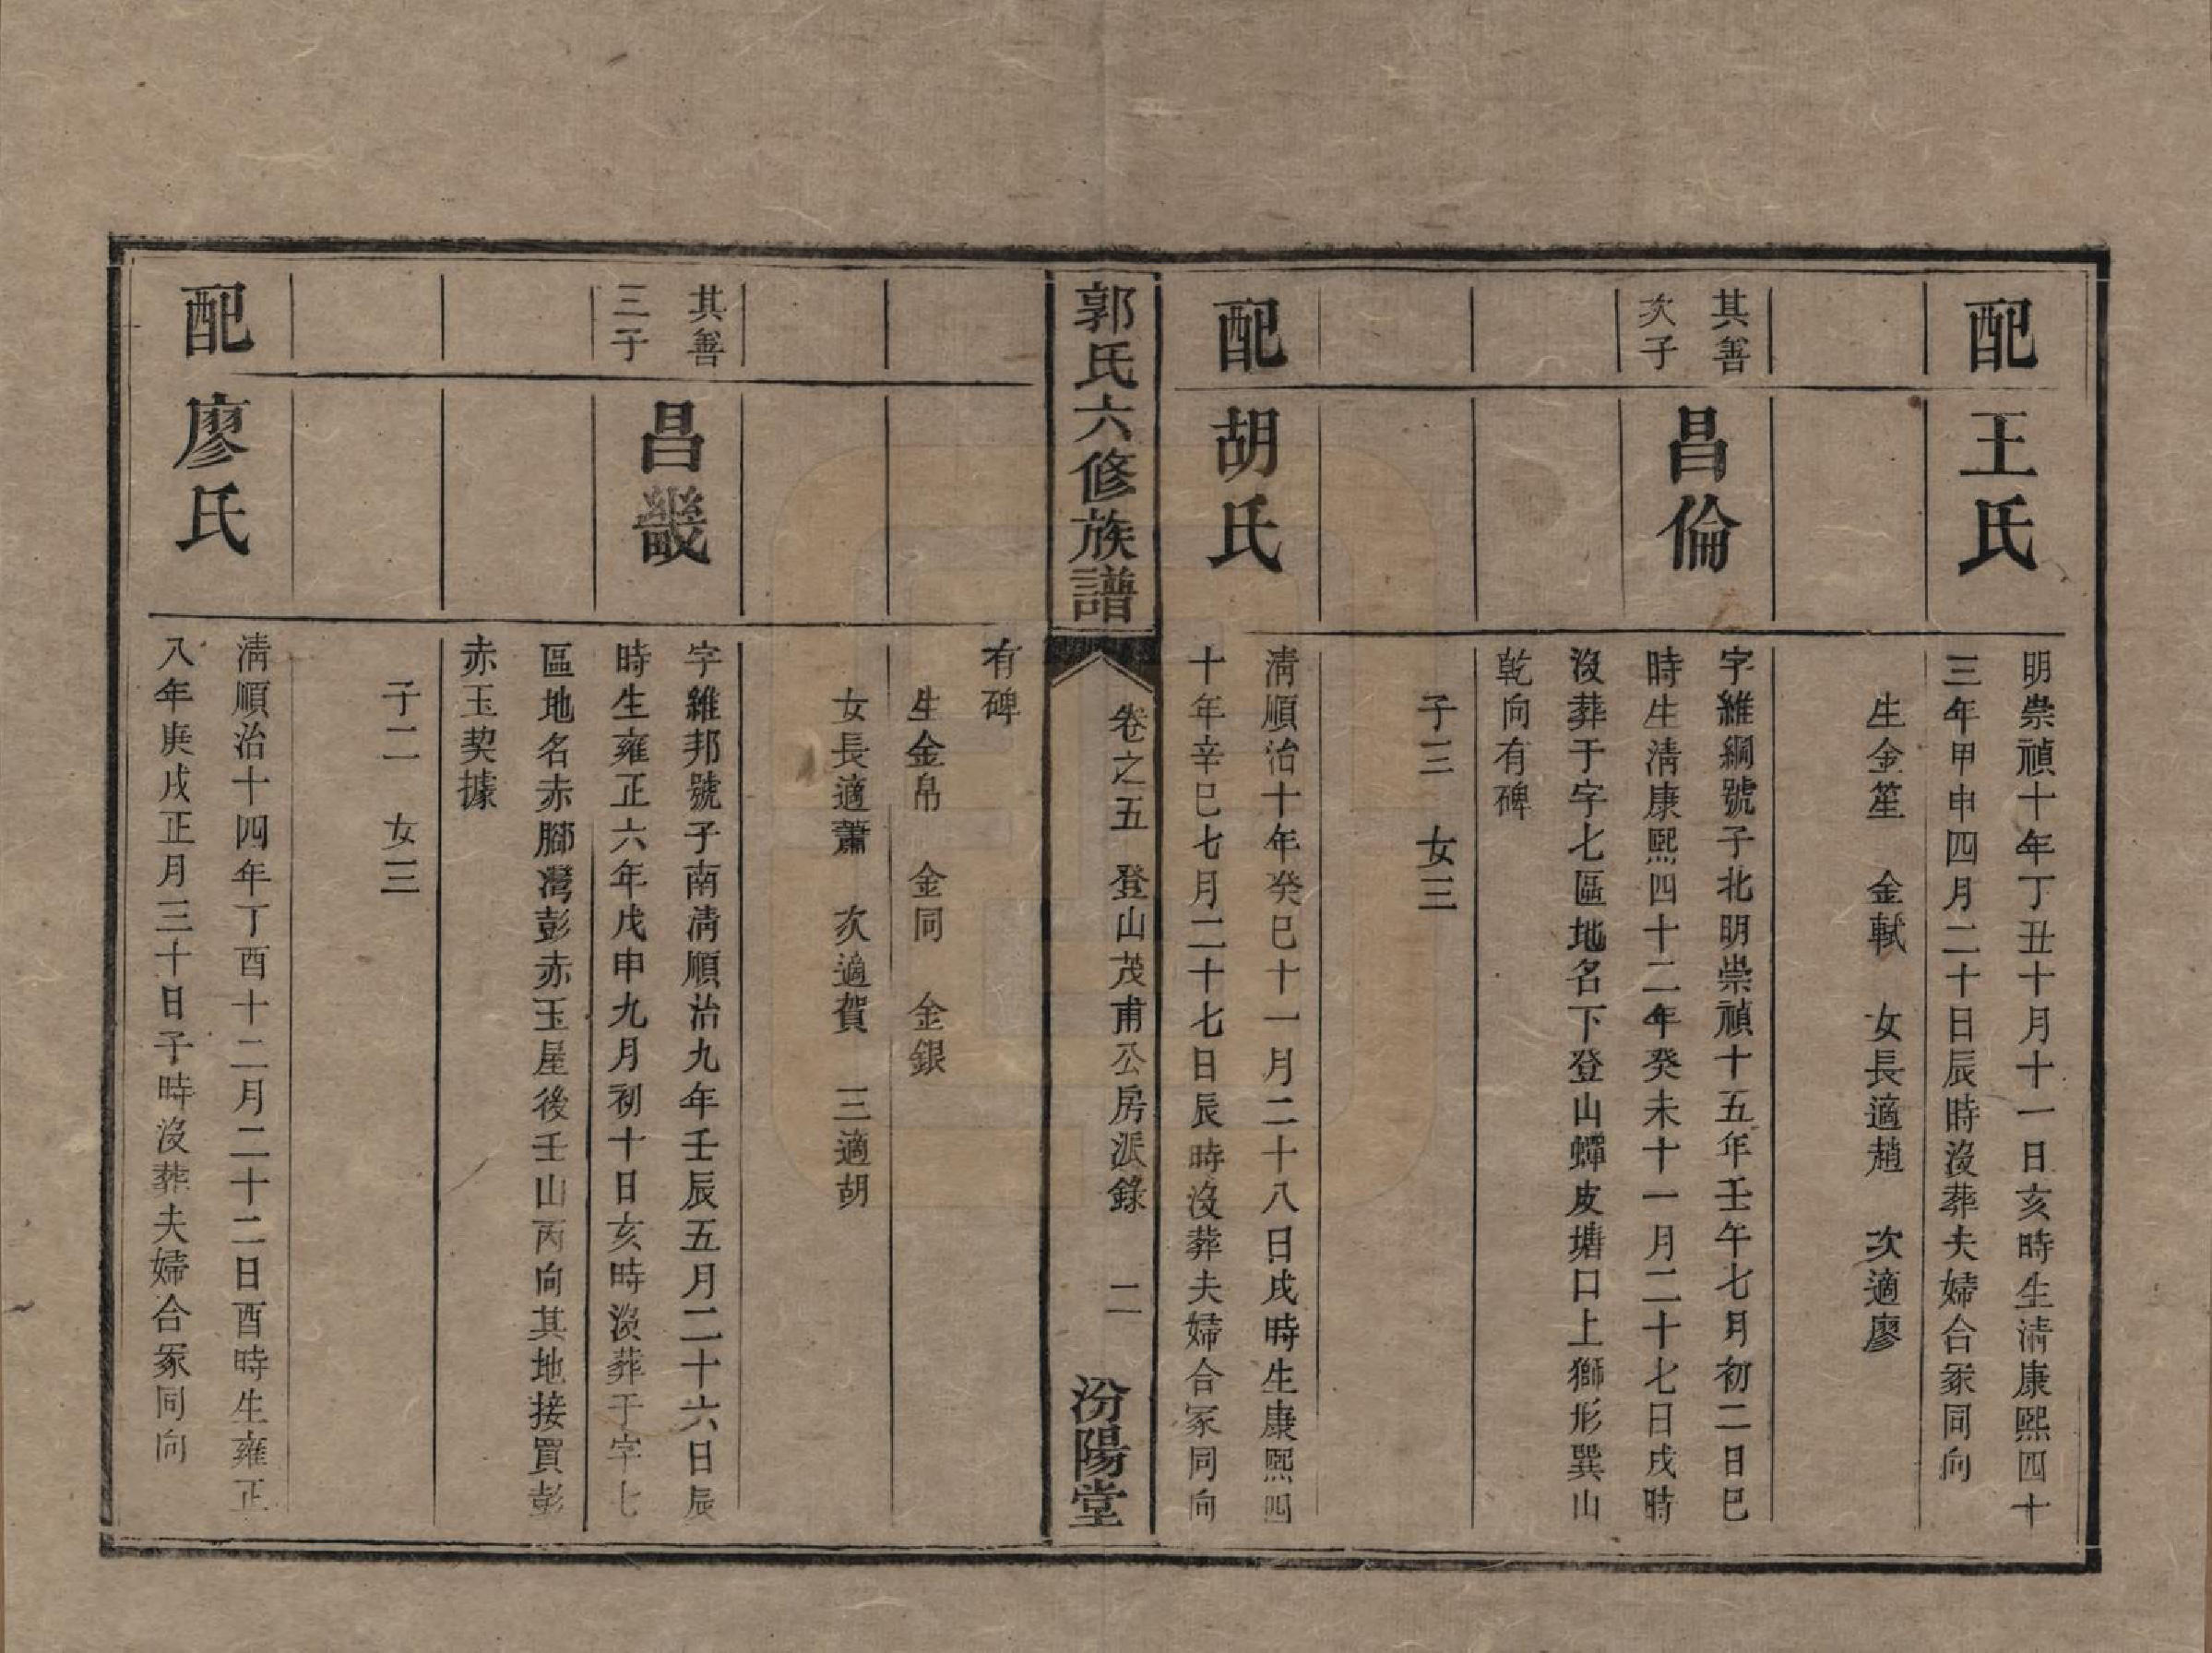 配
王氏
明崇禎十年丁丑十月十一日亥時生淸康熙四十
三年甲申四月二十日辰時沒葬夫婦合冢同向
生金笙　金軾　女長適趙　次適廖
其善
次子
昌倫
字維綱號子北明崇禎十五年壬午七月初二日巳
時生淸康熙四十二年癸未十一月二十七日戌時
沒葬于字七區地名下登山蟬皮塘口上獅形巽山
乾向有碑
子三　女三
配
胡氏
淸順治十年癸巳十一月二十八日戌時生康熙四
十年辛巳七月二十七日辰時沒葬夫婦合冢同向
郭氏六修族譜
卷之五　登山茂甫公房派錄　二
汾陽堂
有碑
生金帛　金同　金銀
女長適蕭　次適賀　三適胡
其善
三子
昌畿
字維邦號子南淸順治九年壬辰五月二十六日辰
時生雍正六年戊申九月初十日亥時沒葬于字七
區地名赤腳灣彭赤玉屋後壬山丙向其地接買彭
赤玉契據
子二　女三
配
廖氏
淸順治十四年丁酉十二月二十二日酉時生雍正
八年庚戌正月三十日子時沒葬夫婦合冢同向